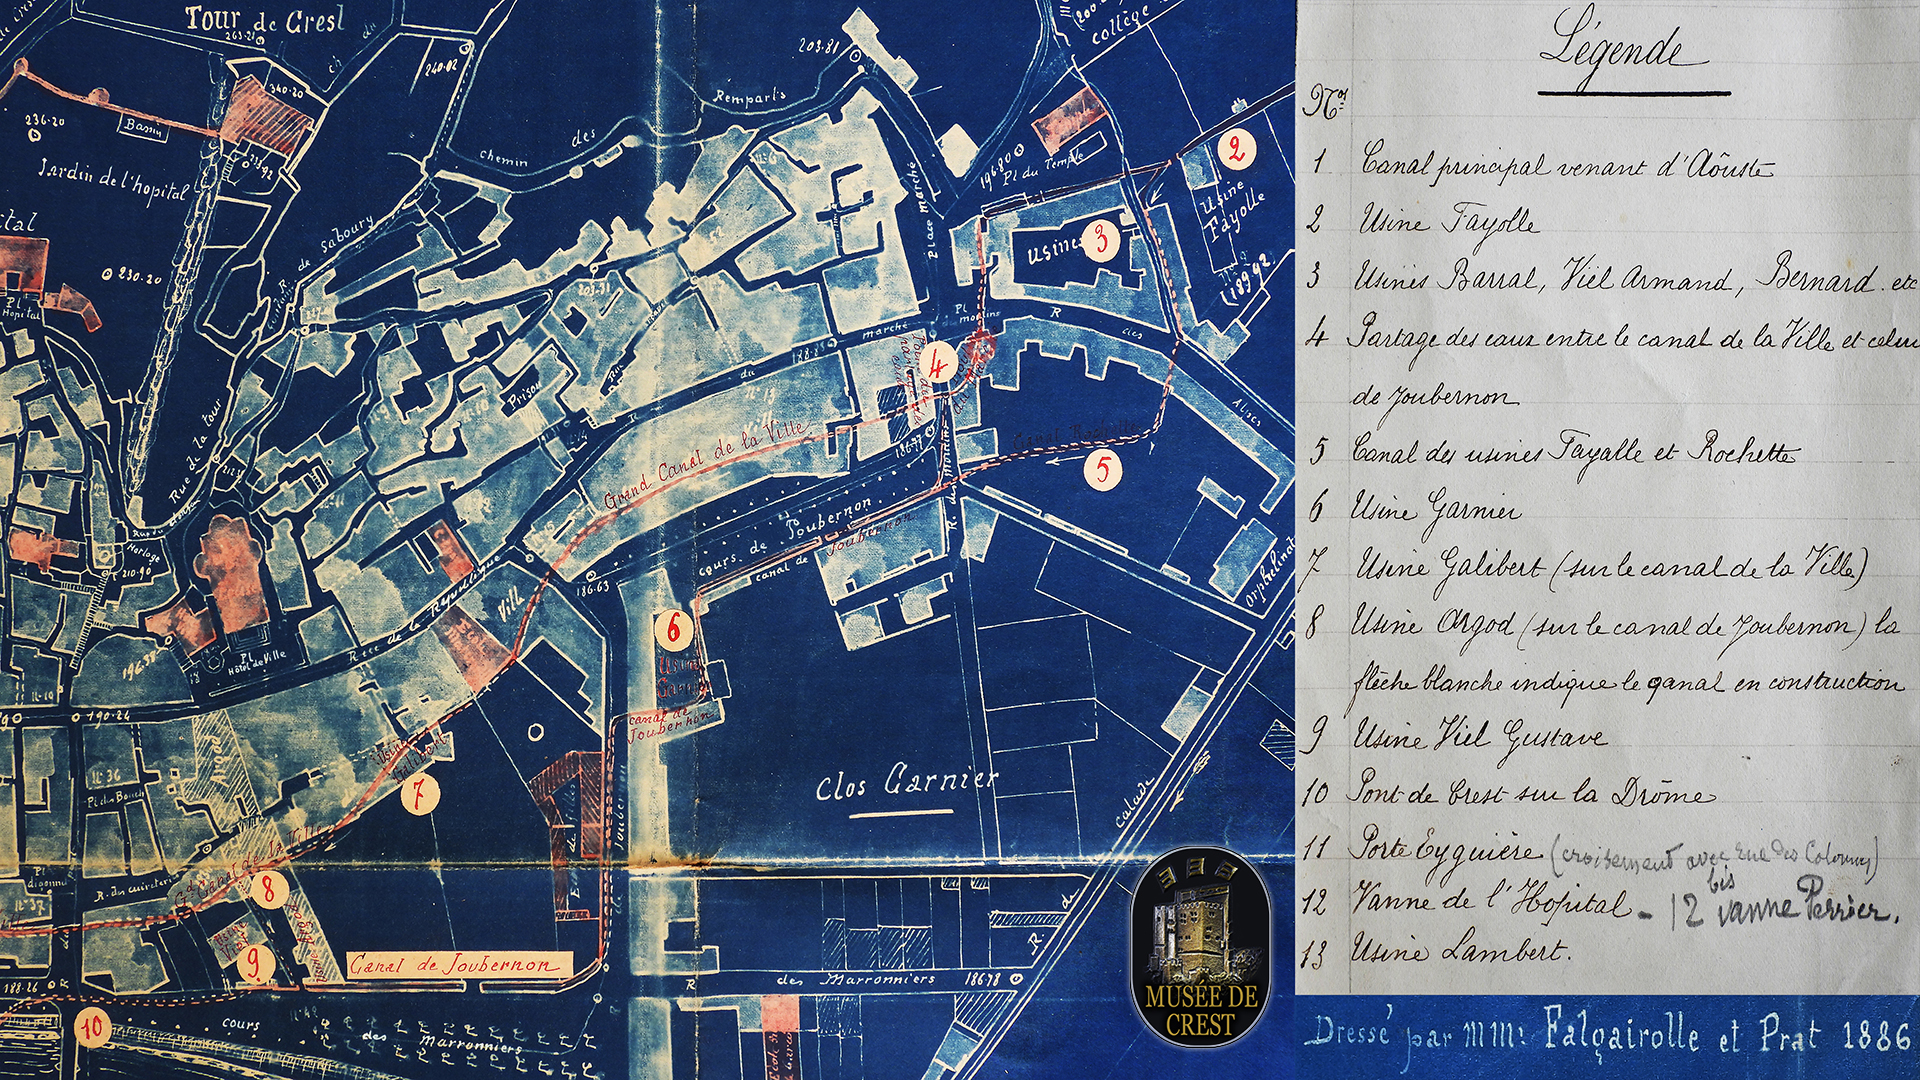 Tour de Crest
263.21
240.02
203.81
(200
collège
Remparts
des
chemin
340.20
236.20
Bassin
Jardin de l'hopital
230.20
Pl
Hopital
R. de Saboury
place marché
196.80
Pl du Temple
2
Usine
Fayolle
189.92
Usines 3
Pl
moulins
R des Alpes
marché
du
R
188.85
4
Prison
N°13
Grand Canal de la Ville
Canal Rochette
5
186.77
R. des Moulins
cours de Joubernon
canal de Joubernon
Rue de la tour
Horloge
210.90
Rue de la République
Ville
186.63
6
Usine
Garnier
canal de
Joubernon
Orphelinat
196.38
Pl
Hôtel de Ville
190.24
Usine
Galibert
7
Clos Garnier
calade
N°36
Pl des Bouch
Argod
R. des cuireteries
Gd Canal de la Ville
8
N°37
9
Canal de Joubernon
188.26
R
10
cours des Marronniers
R des Marronniers 186.78
R de
MUSÉE DE
CREST
Légende
Nos
1 Canal principal venant d'Aôuste
2 Usine Fayolle
3 Usines Barral, Viel Armand, Bernard. etc
4 Partage des eaux entre le canal de la Ville et celui
de Joubernon
5 Canal des usines Fayalle et Rochette
6 Usine Garnier
7 Usine Galibert (sur le canal de la Ville)
8 Usine Argod (sur le canal de Joubernon) la
flèche blanche indique le canal en construction
9 Usine Viel Gustave
10 Pont de Crest sur la Drôme
11 Porte Eyguière (croisement avec rue des Colonnes)
12 Vanne de l'Hopital - 12 bis vanne Perrier.
13 Usine Lambert.
Dressé par MMrs Falçairolle et Prat 1886